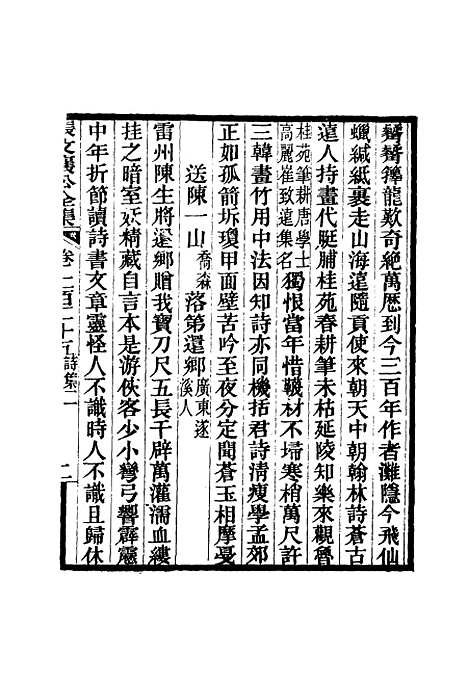 籜龍歎奇絕萬歷到今三百年作者灘隱今飛仙
蠟緘紙裹走山海遠隨貢使來朝天中朝翰林詩蒼古
遠人持畫代脡脯桂苑春耕筆未枯延陵知樂來觀魯
桂苑筆耕唐學士高麗崔致遠集名獨恨當年惜韈材不埽寒梢萬尺許
三韓畫竹用中法因知詩亦同機括君詩清瘦學孟郊
正如孤箭坼瓊甲面壁苦吟至夜分定聞蒼玉相摩戛
送陳一山喬森落第還鄉廣東遂溪人
雷州陳生將還鄉贈我寶刀尺五長千辟萬灌濡血縷
挂之暗室妖精藏自言本是游俠客少小彎弓響霹靂
中年折節讀詩書文章靈怪人不識時人不識且歸休
張文襄公全集 卷二百二十五 詩集二 二